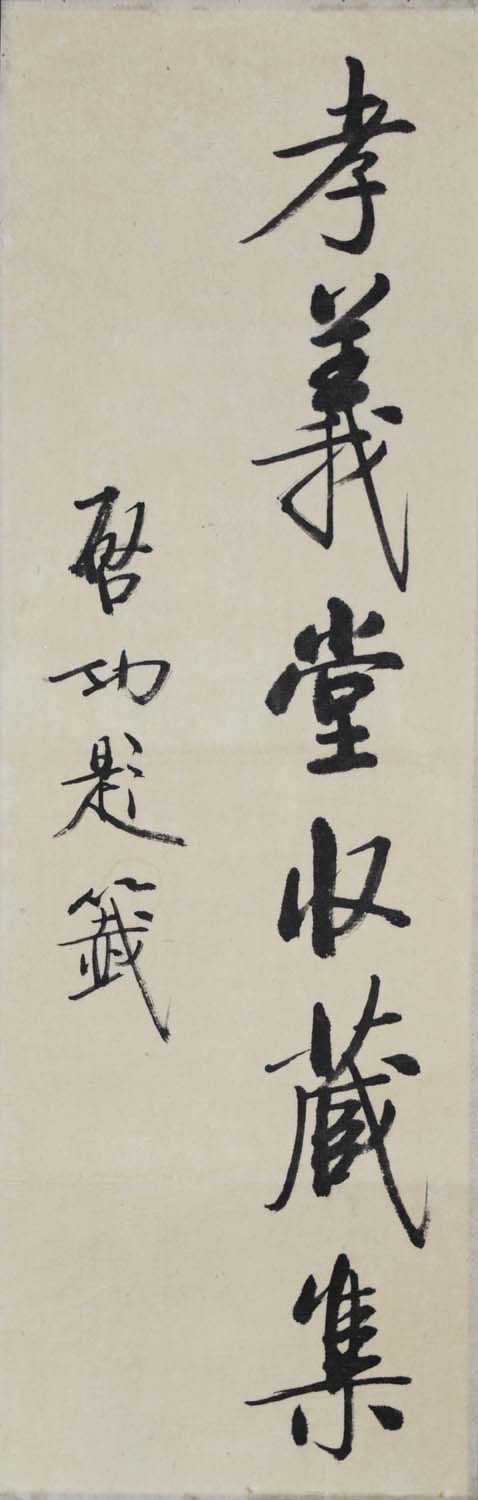 孝義堂收藏集
啓功題籤